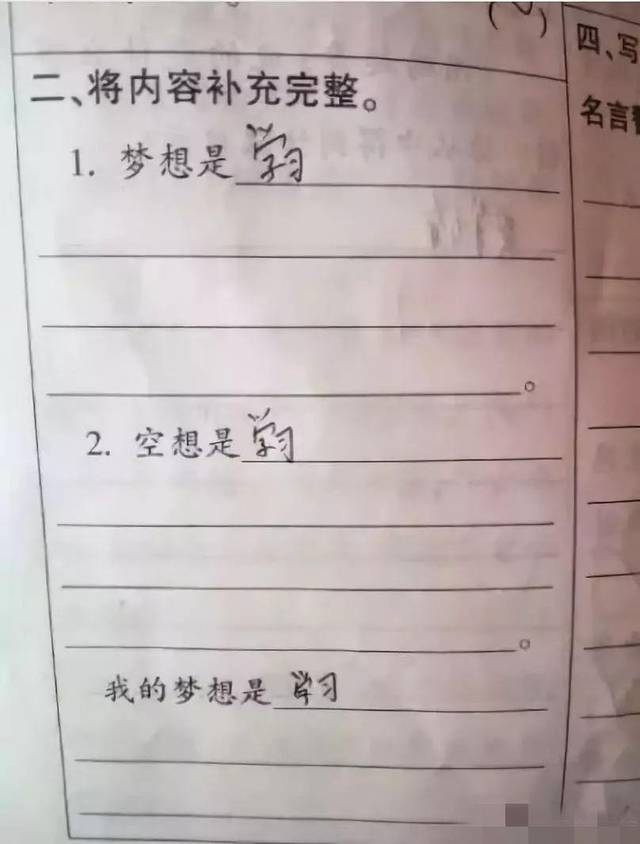 四、写
名言
二、将内容补充完整。
1. 梦想是学习
。
2. 空想是学习
。
我的梦想是学习